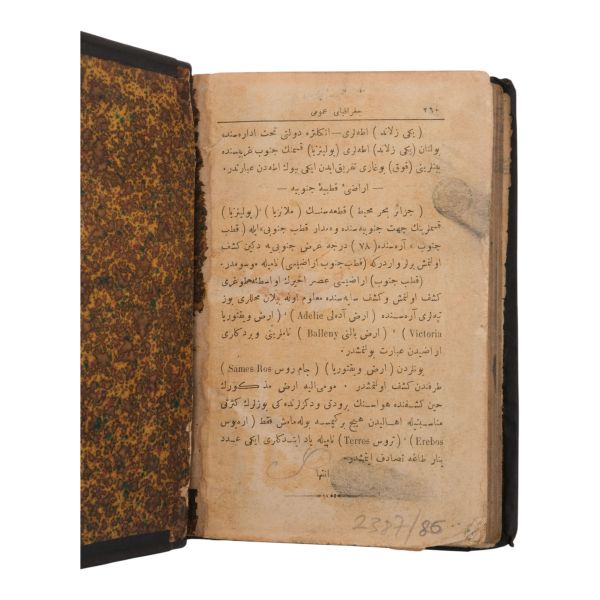 جغرافیای عمومی ٢٦٠
( یکی زلاند ) اطه‌لری — انکلتره دولتی تحت اداره‌سنده
بولنان ( یکی زلاند ) اطه‌لری ( پولینزیا ) قسمنك جنوب غربیسنده
بینلرینی ( قوق ) بوغازی تفریق ایدن ایکی بیوك اطه‌دن عبارتدر.
— اراضیٔ قطبیهٔ جنوبیه —
( جزائر بحر محیط ) قطعه‌سنك ( ملانزیا ) ، ( پولینزیا )
قسملرینك جهت جنوبیه‌سنده و «مدار قطب جنوبی» ایله ( قطب
جنوب » آره‌سنده ( ٧٨ ) درجه عرض جنوبی‌یه دکین کشف
اولنمش یرلر واردرکه ( قطب جنوب اراضیسی ) نامیله موسومدر.
( قطب جنوب ) اراضیسی عصر اخیرك اواسطنه طوغری
کشف اولنمش و کشف سایه‌سنده معلوم اوله بیلان محللری بوز
تپه‌لری آره‌سنده ( ارض آده‌لی Adelie ) ، ( ارض ویقتوریا
Victoria ) ، ( ارض بالنی Balleny ) ناملرینی ویردکاری
اراضیدن عبارت بولنمشدر.
بونلردن ( ارض ویقتوریا ) ( جام روس Sames Ros )
طرفندن کشف اولنمشدر . مومی‌الیه ارض مذکورك
حین کشفنده هواسنك برودتی و دکزلرنده کی بوزلرك کثرتی
مناسبتیله اهالیدن هیچ برکیمسه بوله‌مامش فقط ( اره‌بوس
Erebos ) ، ( تروس Terres ) نامیله یاد ایتدکاری ایکی عدد
ینار طاغه تصادف ایتمشدر.
انتها
2387/86